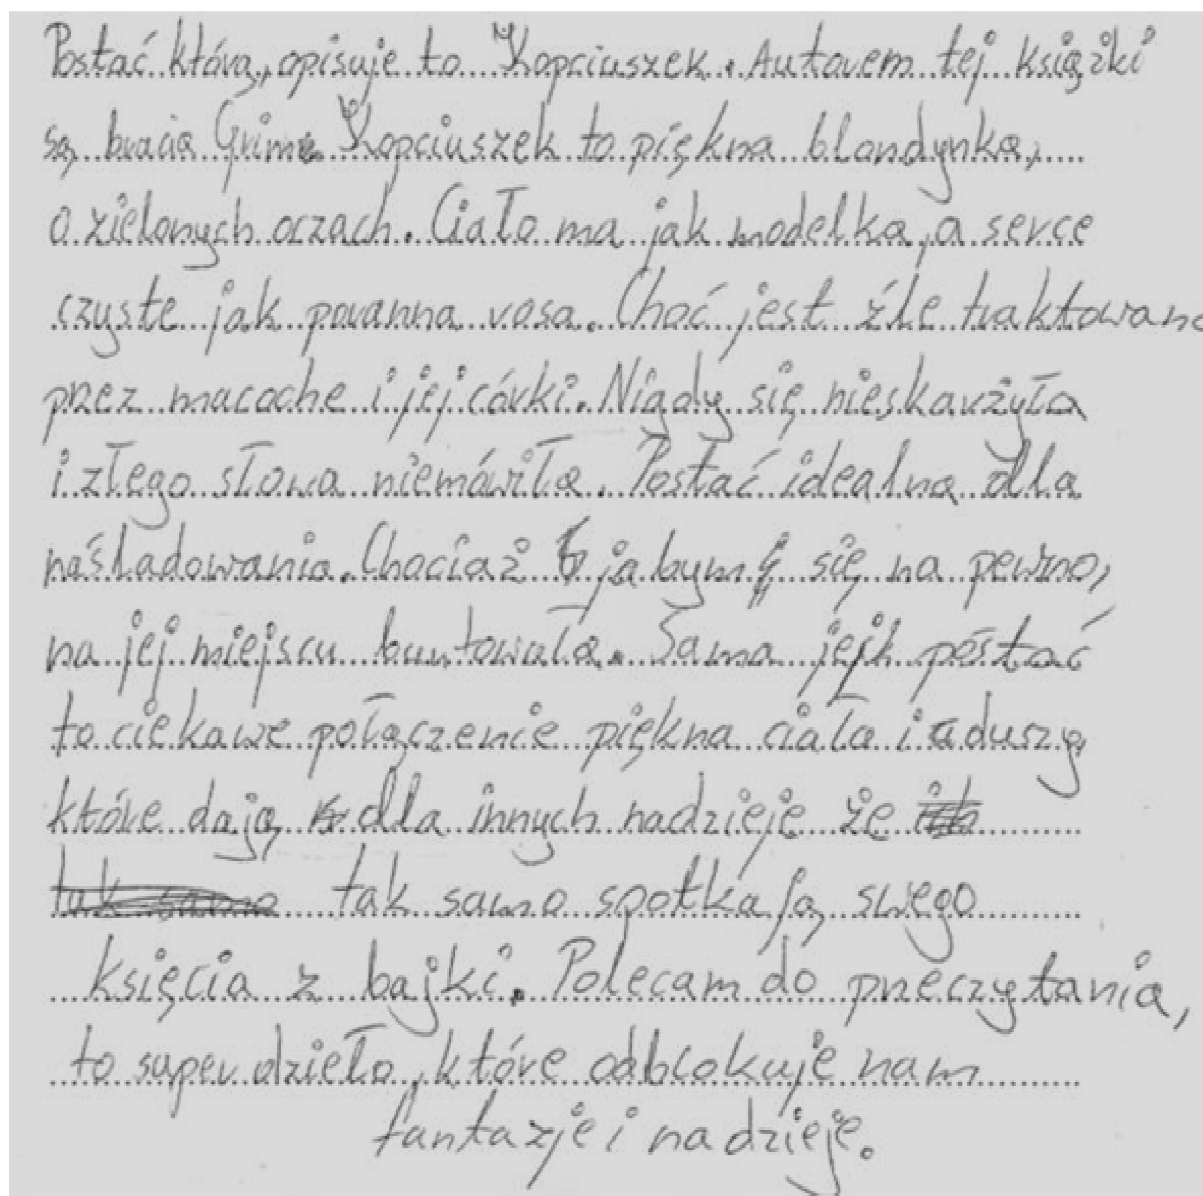 Postać którą opisuje to Kopciuszek. Autorem tej książki
są bracia Grimm Kopciuszek to piękna blondynka,
o zielonych oczach. Ciało ma jak modelka, a serce
czyste jak poranna rosa. Choć jest źle traktowana
przez macoche i jej córki. Nigdy się nieskarżyła
i złego słowa niemówiła. Postać idealna dla
naśladowania. Chociaż ja bym się na pewno,
na jej miejscu buntowała. Sama jej postać
to ciekawe połączenie piękna ciała i duszy
które dają dla innych nadzieję że
tak samo spotkają swego
księcia z bajki. Polecam do przeczytania,
to super dzieło, które odblokuje nam
fantazje i nadzieje.